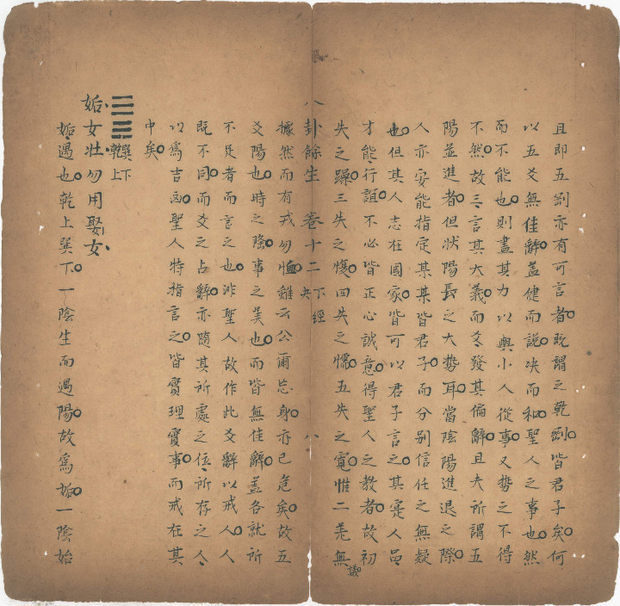 且即五劉亦有可言者既謂之乾劉皆君子矣何
以五爻無佳辭蓋健而說决而和聖人之事也然
而不能也則盡其力以與小人從事又勢之不得
不然故彖言其大義而爻發其偏辭且夫所謂五
陽並進者但狀陽長之大勢耳當陰陽進退之際
人亦安能指定某某皆君子而分别信任之無疑
也但其人志在國家皆可以君子言之其寔人品
才能行誼不必皆正心誠意得聖人之教者故初
失之躁三失之愎四失之懦五失之寛惟二差無
譏
八卦餘生 卷十二 下經 夬 八
據然而有戎勿恤雖云公爾忘身亦已危矣故五
爻陽也時之隆事之美也而皆無佳辭盖各就所
不足者而言之也非聖人故作此爻辭以戒人人
既不同而爻之占辭亦隨其所處之位所存之人
以爲吉凶聖人特指言之皆實理實事而戒在其
中矣
巽下
乾上
姤女壯勿用娶女
姤遇也乾上巽下一陰生而遇陽故爲姤一陰始